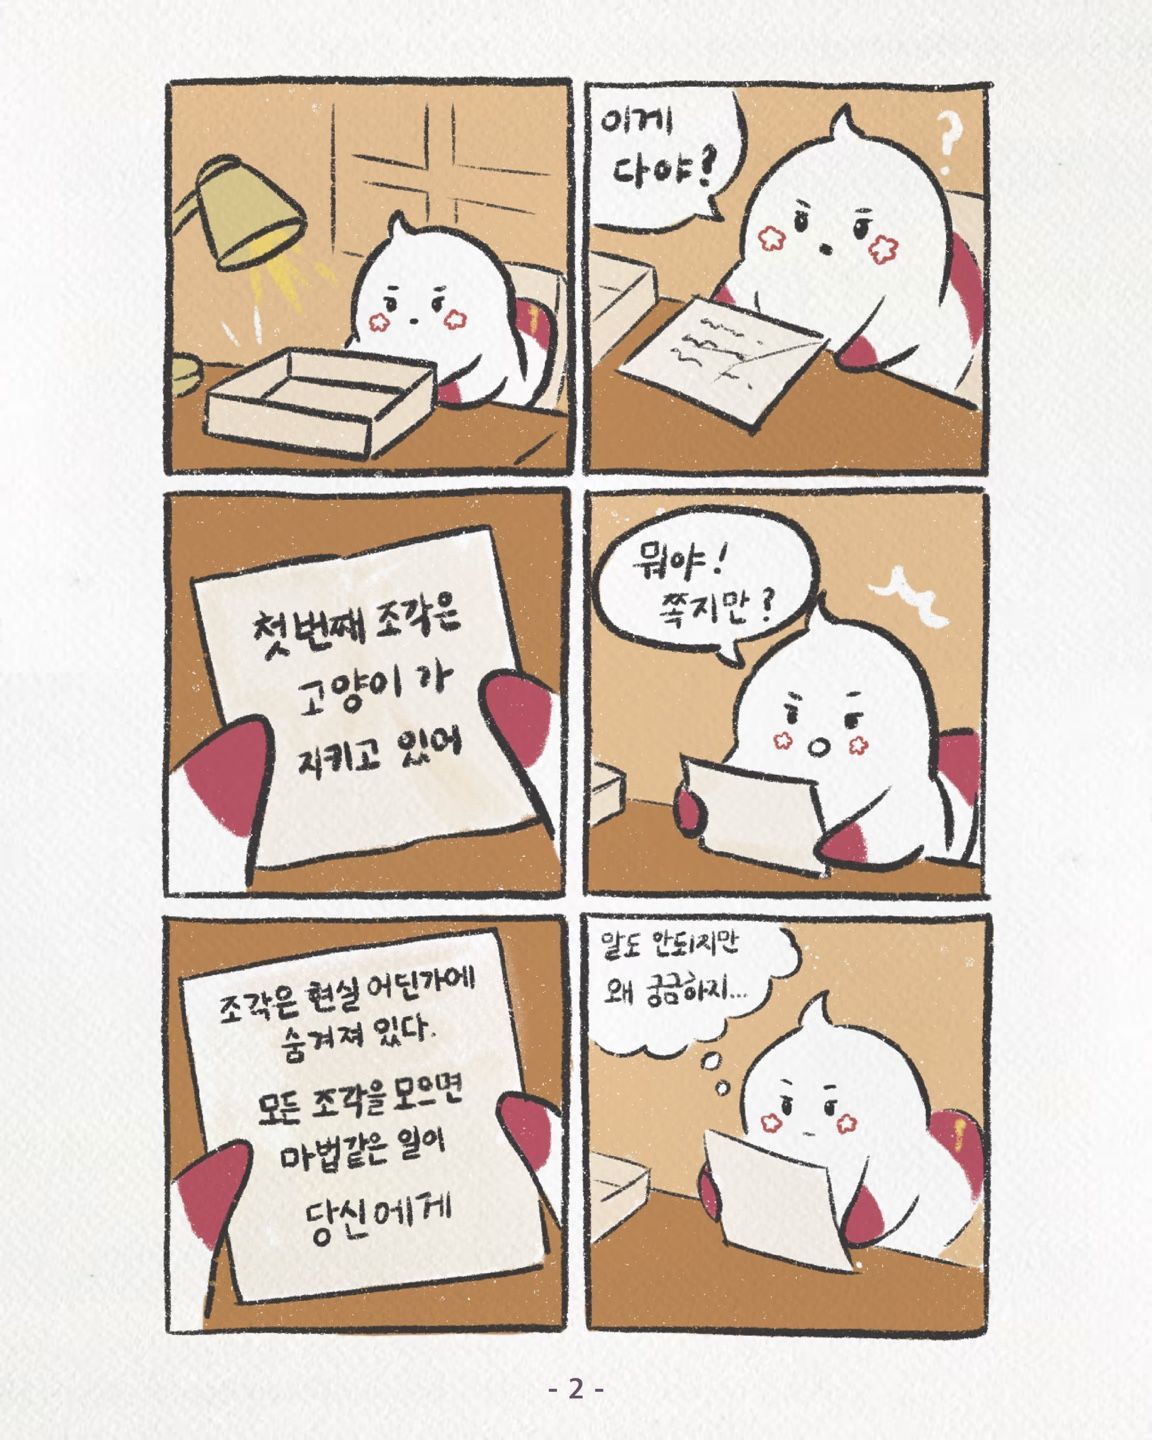 이게
다야?
첫번째 조각은
고양이 가
지키고 있어
뭐야!
쪽지만?
조각은 현실 어딘가에
숨겨져 있다.
모든 조각을 모으면
마법같은 일이
당신에게
말도 안되지만
왜 궁금하지...
- 2 -